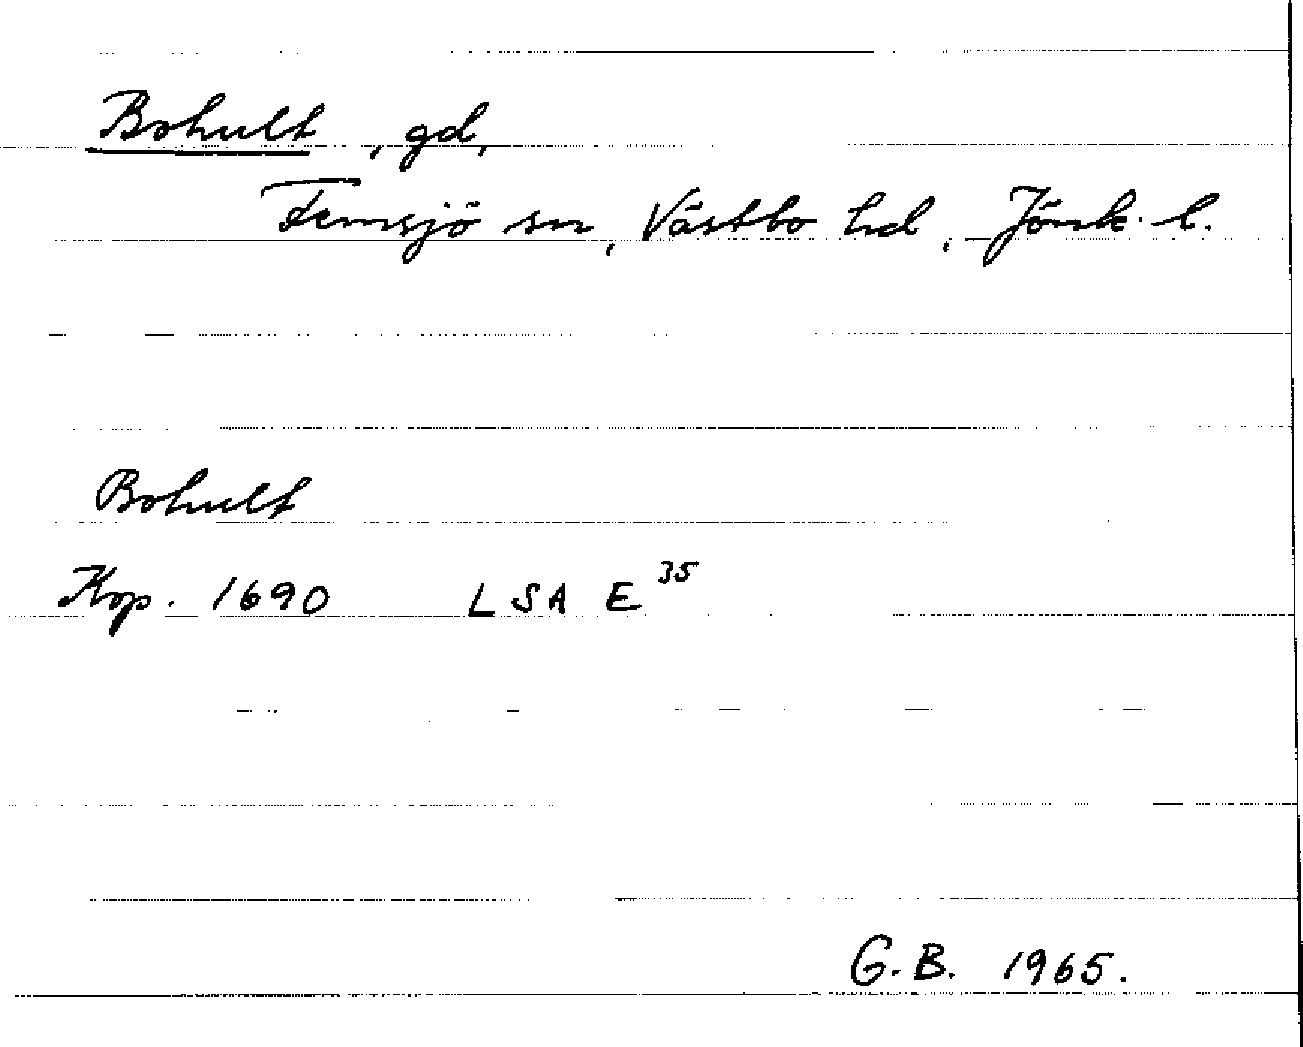 Bohult, gd,
Femsjö sn, Västbo hd, Jönk. l.
Bohult
Kop. 1690 LSA E 35
G.B. 1965.